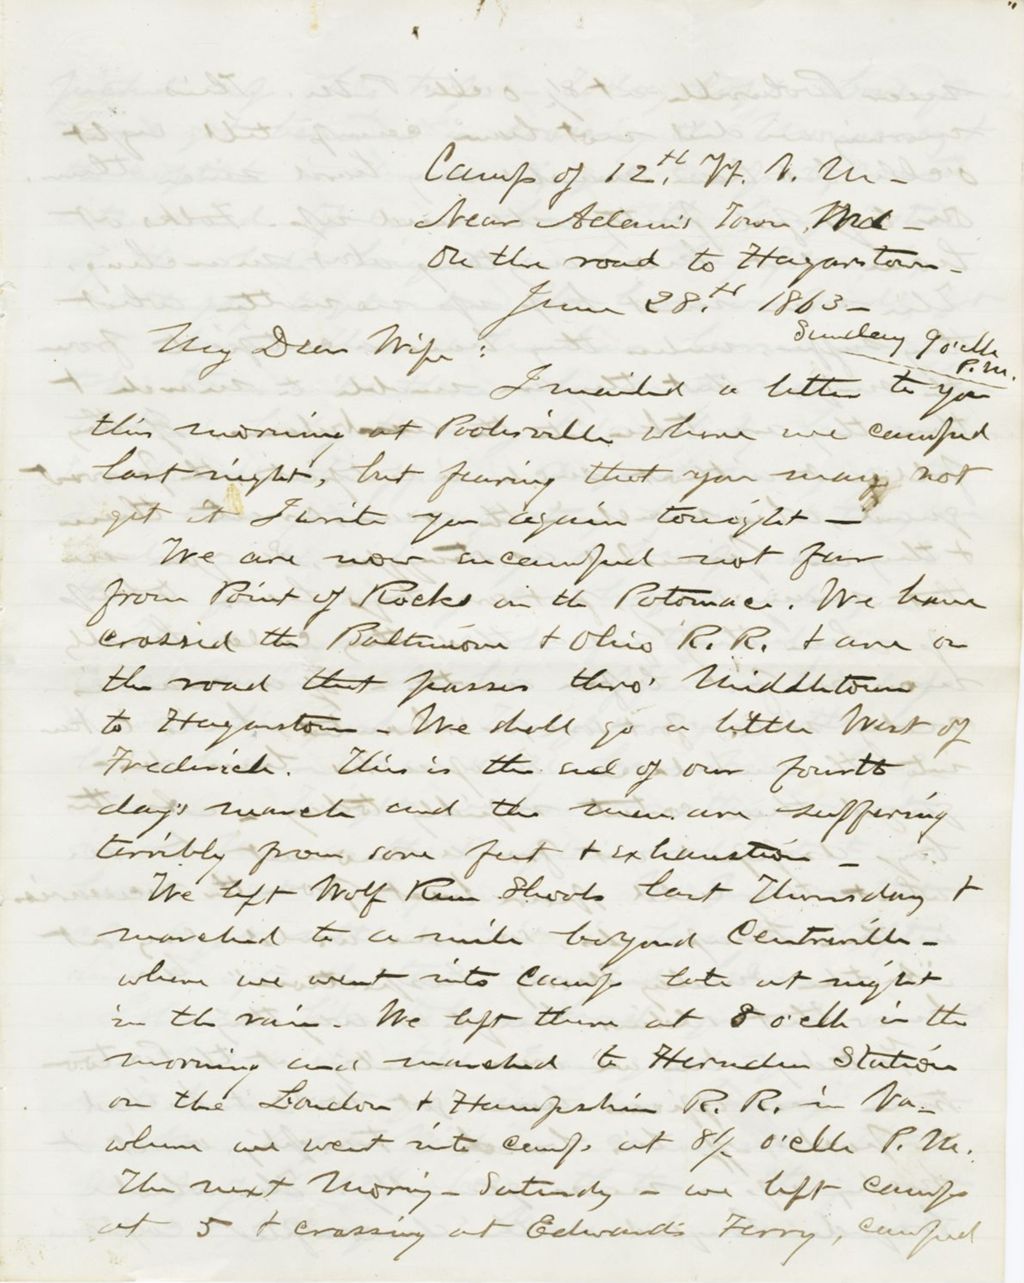 Camp of 12th Vt. V. M -
Near Adam's Town, Md -
On the road to Hagarstown -
June 28th 1863 -
Sunday 9 o'clk
P.M.
My Dear Wife:
I mailed a letter to you
this morning at Poolesville where we camped
last night, but fearing that you may not
get it I write you again tonight -
We are now encamped not far
from Point of Rocks on the Potomac. We have
crossed the Baltimore & Ohio R. R. & are on
the road that passes thro' Middletown
to Hagarstown - We shall go a little West of
Frederick. This is the end of our fourth
day's march and the men are suffering
terribly from sore feet & exhaustion -
We left Wolf Run Shoals last Thursday &
marched to a mile beyond Centreville -
where we went into Camp late at night
in the rain. We left there at 8 o'clk in the
morning and marched to Herndon Station
on the Loudon & Hampshire R. R. in Va -
where we went into camp at 8½ o'clk P. M.
The next Morning - Saturday - we left camp
at 5 & crossing at Edward's Ferry, camped